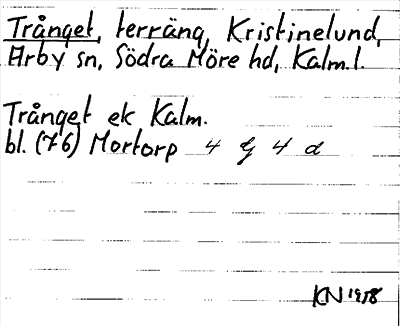 Trånget, terräng, Kristinelund,
Arby sn, Södra Möre hd, Kalm.l.
Trånget ek Kalm.
bl. (76) Mortorp 4 G 4 d
KN 1958